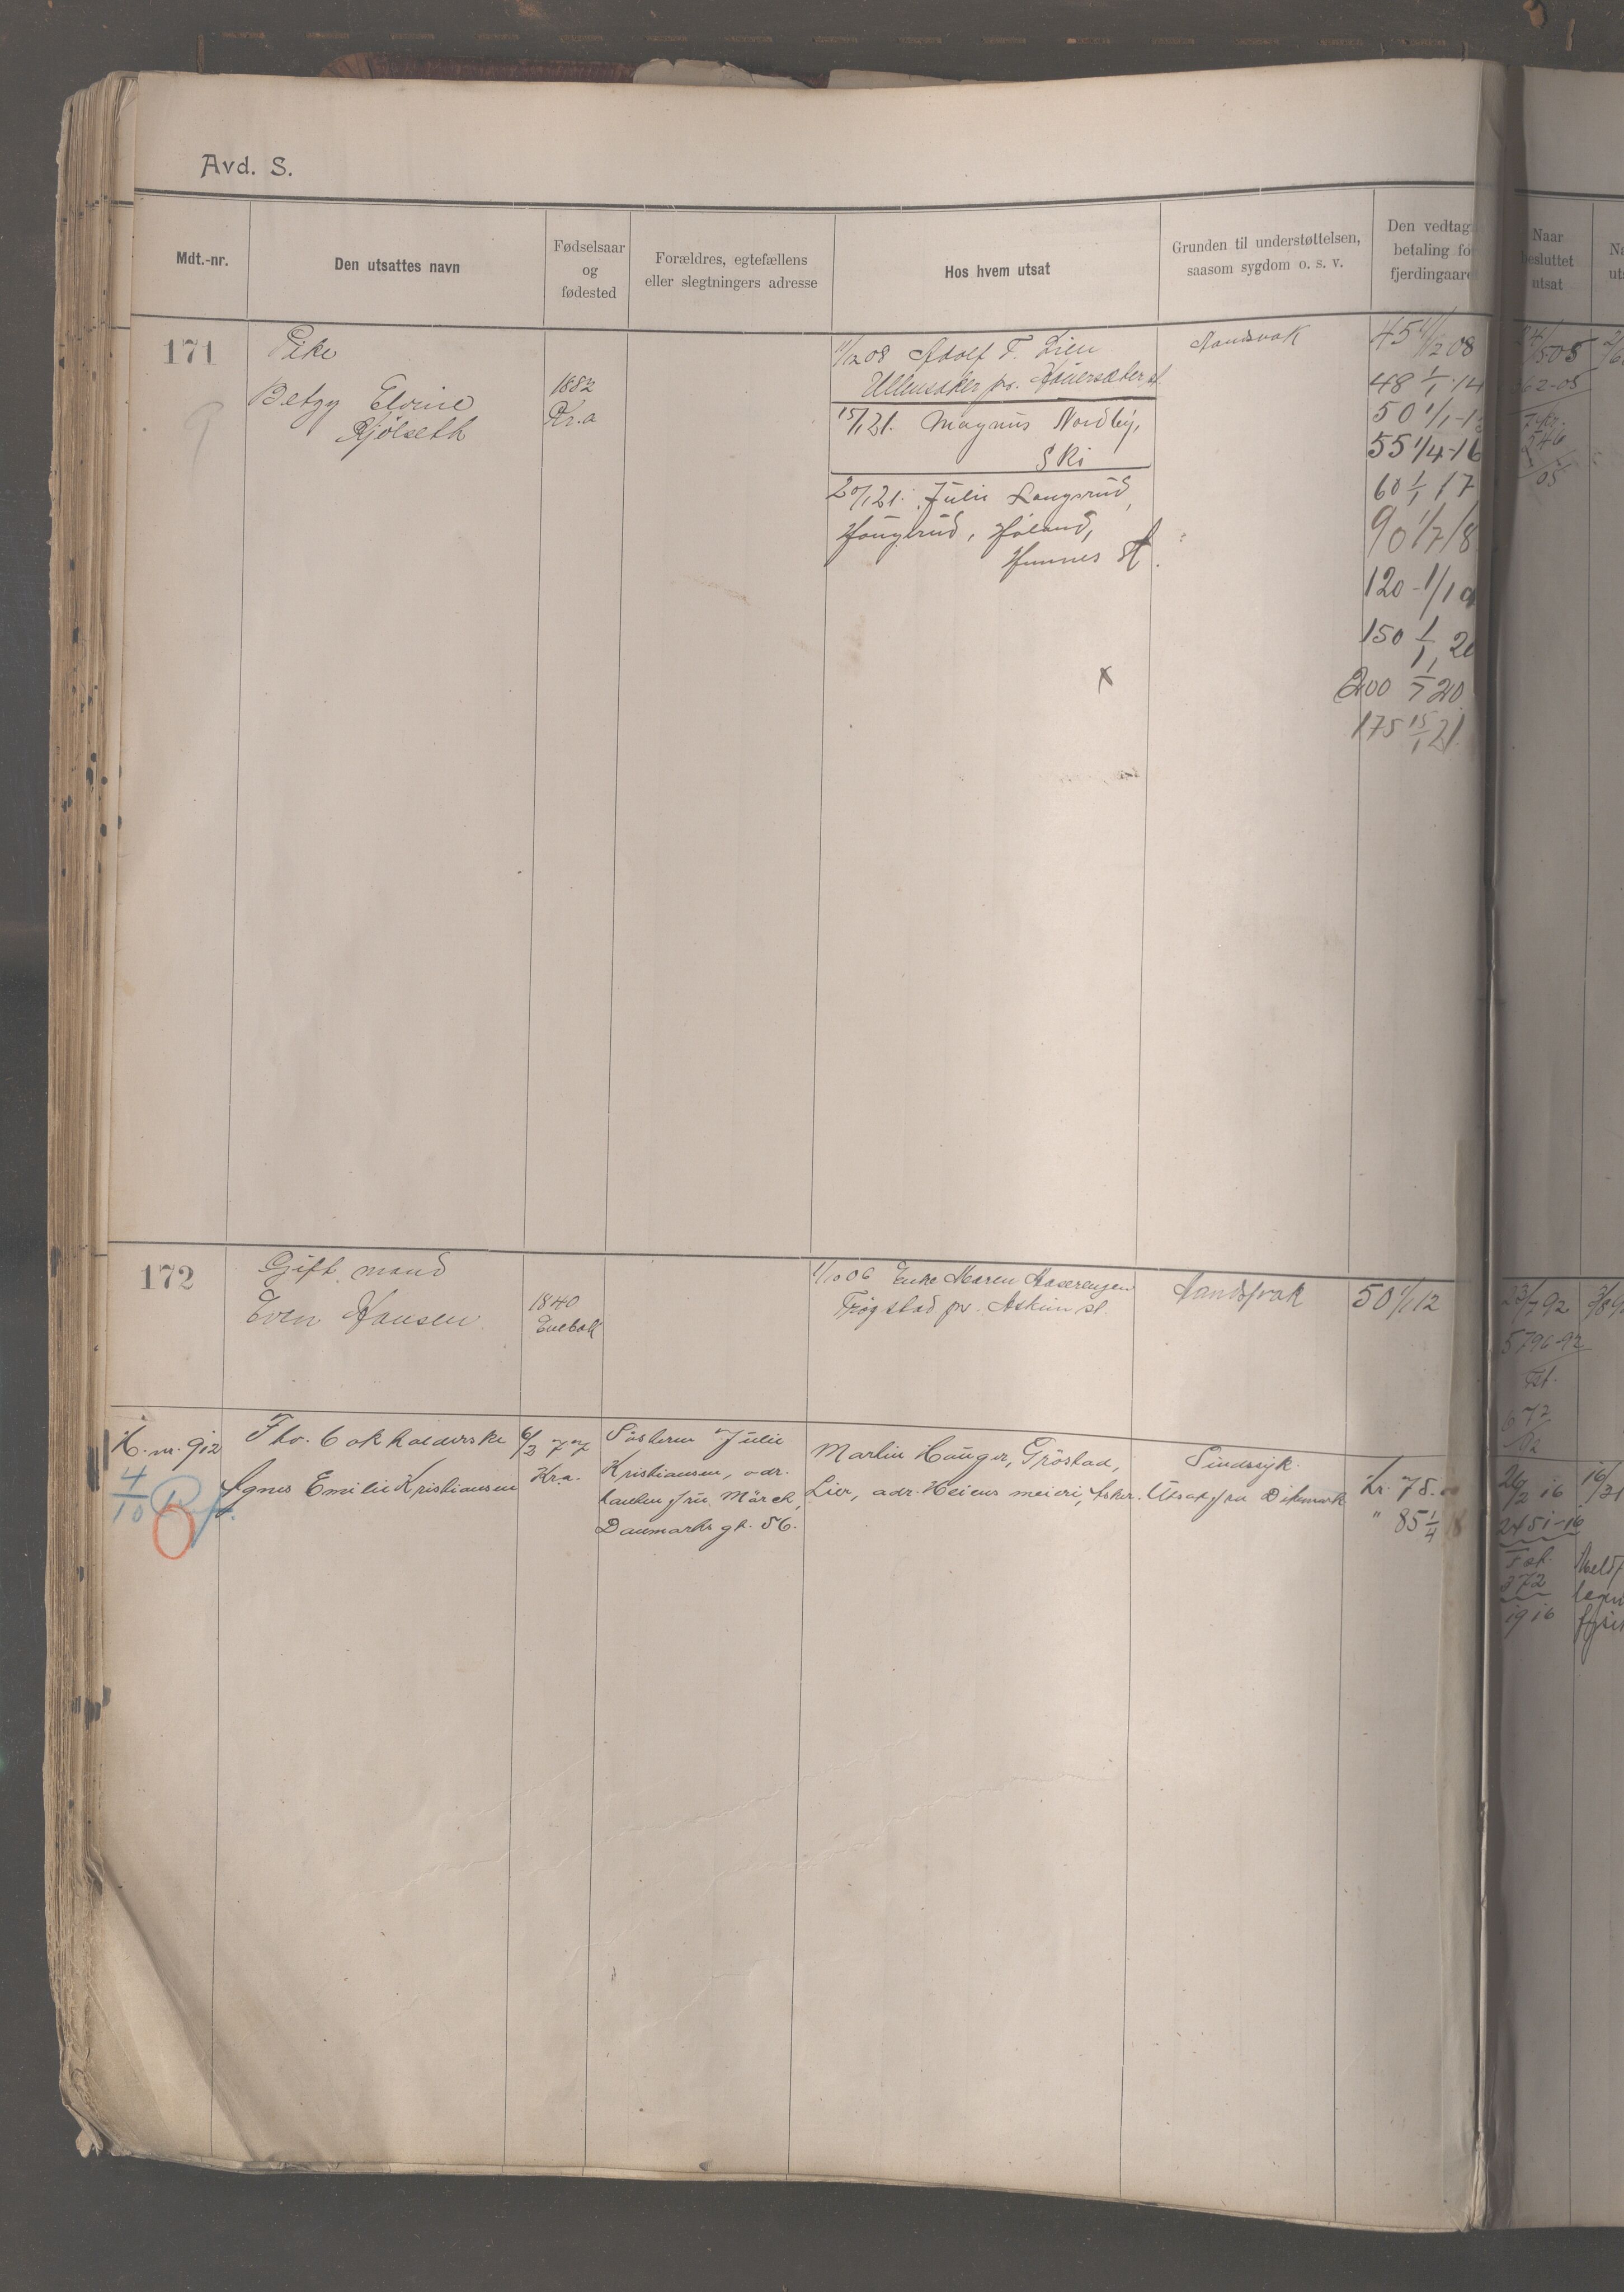 Avd. S.
Mdt.-nr.
Den utsattes navn
Fødselsaar
og
fødested
Forældres, egtefællens
eller slegtningers adresse
Hos hvem utsat
Grunden til understøttelsen,
saasom sygdom o. s. v.
Den vedtag
betaling fo
fjerdingaare
Naar
besluttet
utsat
171
Pike
Betzy Elvine
Kjölseth
1882
Kr.a
1/12 08 Adolf F. Lien
Ullensaker pr. st.
15/1 21. Magnus Nordby,
Ski
20/1 21. Julie Langsrud,
Høland,
Hemnes st.
Aandsvak
45 1/12 08
48 1/1-14
50 1/1-1
55 1/4-16
60 1/1 17
90 1/7 18
120 - 1/1
150 1/1 20
200 1/7 20
175 15/1 21.
172
Gift mand
Even Hansen
1840
Enebak
1/10 06 Enke Maren Aaserengen
Trøgstad pr. Askim st.
Aandsvak
50 1/1 12
23/7 92
5796-92
K. nr. 912
4/10
Fhv. kokholderske
Agnes Emilie Kristiansen
6/3 77
Kra.
Søsteren Julie
Kristiansen, adr.
tanten fru March,
Danmarks gt. 56.
Martin Hauger, Tröstad,
Lier, adr. Heiens meieri, Asker.
Sindssyk.
Utsat fra Dikemark
Kr. 75.00
" 85 1/4 18
26/2 16
2451-16
372
1916